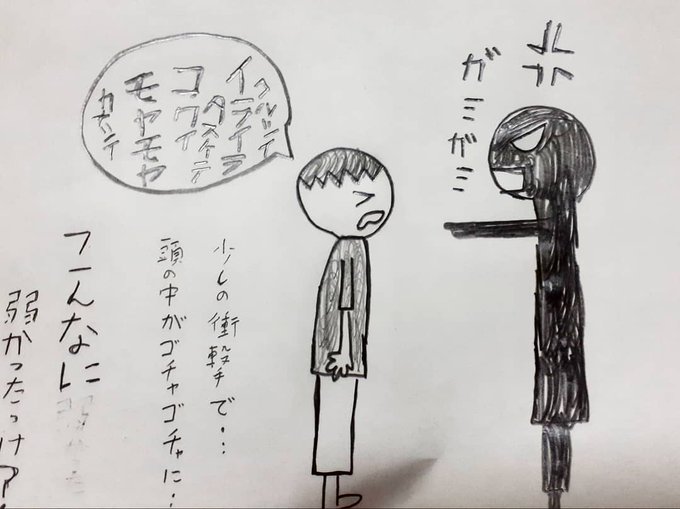 ガミガミ
イライラ
タスケテ
コワイ
モヤモヤ
少しの衝撃で・・
頭の中がゴチャゴチャに・
こんなに
弱かったっけ?